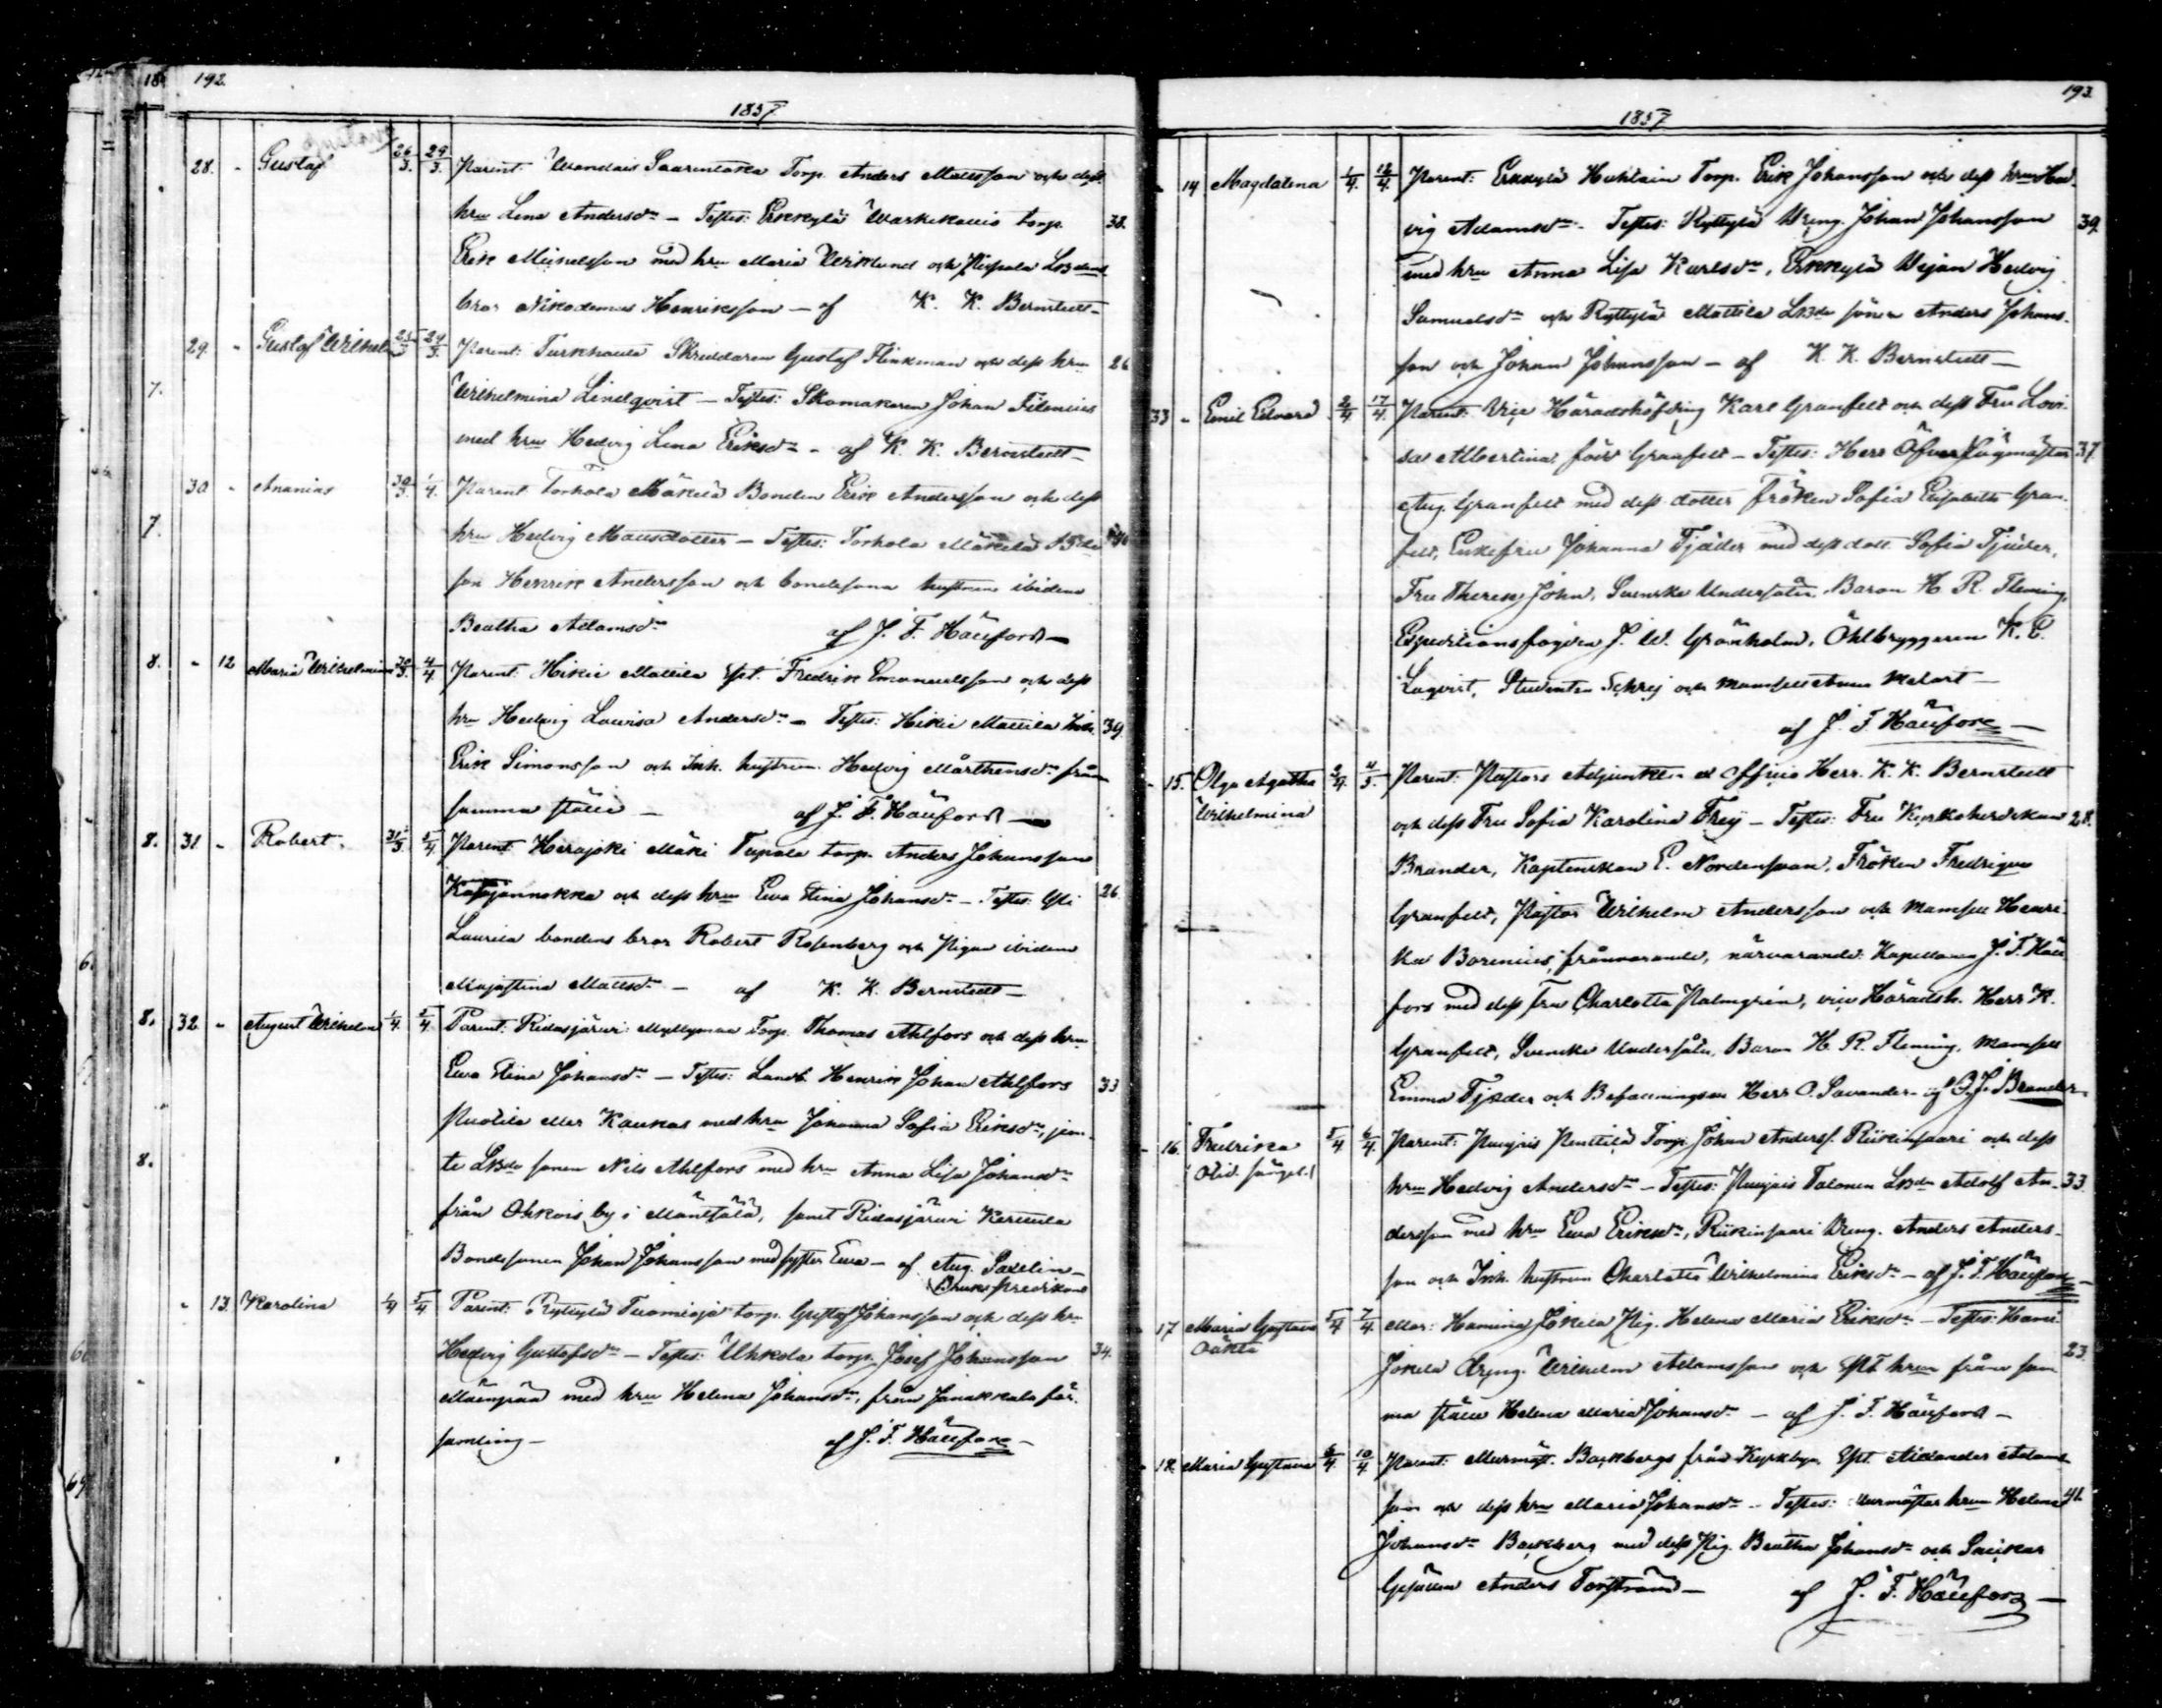 192.
1857
28. - Gustaf 26/3. 29/3. Parent: Wandais Saarenlaka Torp. Anders Mattsson och dess
hru Lena Andersdr – Testes: Erkkylä Warkikallio torp. 38.
Erik Michelsson med hru Maria Wiklund och
bror Nikodemus Henriksson – af K. K. Bernstedt –
29. - Gustaf Wilhelm 25/3 29/3. Parent: Turkhauta Skreddaren Gustaf Flinkman och dess hru 26
7.
Wilhelmina Lindqvist – Testes: Skomakaren Johan Filenius
med hru Hedvig Lena Eriksdr – af K. K. Bernstedt –
30 - Ananias 30/3. 1/4. Parent: Torhola Mäkelä Bonden Erik Andersson och dess
7.
hru Hedvig Mausdotter – Testes: Torhola Mäkelä
son Henrik Andersson och bondesona hustrun ibidem
Beatha Adamsdr af J. F. Hällfors –
8. - 12 Maria Wilhelmina 30/3. 4/4 Parent: Hikiä Mattila Spt. Fredrik Emanuelsson och dess
hru Hedvig Lovisa Andersdr – Testes: Hikiä Mattila Inh. 39
Erik Simonsson och Inh. hustrun Hedvig Mårthensdr från
samma ställe – af J. F. Hällfors –
8. 31. - Robert. 31/3. 5/4 Parent: Herajoki Mäki Tupala torp. Anders Johansson
och dess hru Ewa Stina Johansdr – Testes: 26
Laurila bondens bror Robert Rosenberg och Pigan ibidem
Majastina Mattsdr – af K. K. Bernstedt –
8. 32. - August Wilhelm 1/4. 5/4. Parent: Ridasjärvi Myllymaa Torp. Thomas Ahlfors och dess hru
Ewa Stina Johansdr – Testes: Landb. Henrik Johan Ahlfors 33
Nuotila eller Kaukas med hru Johanna Sofia Eriksdr, jem-
8.
te Lbde sonen Nils Ahlfors med hru Anna Lisa Johansdr
från Ohkois by i Mäntsälä, samt Ridasjärvi Kerttula
Bondesonen Johan Johansson med syster Ewa – af Aug. Paxelin –
Bruks predikant
- 13. Karolina 1/4 5/4 Parent: Ryttylä Tuomioja torp. Gustaf Johansson och dess hru
Hedvig Gustafsdr – Testes: Uhkola torp. Josef Johansson 34.
Mäenpää med hru Helena Johansdr, från Janakkala för-
samling – af J. F. Hällfors –
193.
1857
- 14 Magdalena 1/4. 12/4. Parent: Erkkylä Huhtain Torp. Erik Johansson och dess hru Hed-
vig Adamsdr – Testes: Ryttylä Dreng. Johan Johansson 39.
med hru Anna Lisa Karlsdr, Erkkylä Pigan Hedvig
Samuelsdr och Ryttylä Mattila Lbde söner Anders Johans-
son och Johan Johansson – af K. K. Bernstedt –
33 - Emil Edvard 2/4. 17/4. Parent: Vice Häradshöfding Karl Granfelt och dess Fru Lovi-
sa Albertina född Granfelt – Testes: Herr Öfverjägmästar 37
Aug. Granfelt med dess dotter Fröken Sofia Elisabeth Gran-
felt, Enkefru Johanna Tjäder med dess dott. Sofia Tjäder,
Fru Therese John, Svenske Undersåten Baron H. R. Fleming,
Expeditionsfogden J. W. Grönholm, Öhlbryggaren K. E.
Lagvist, Studenten Schrej och Mamsell Anna Melart –
af J. F. Hällfors –
- 15. Olga Agatha 2/4. 4/5. Parent: Pastors Adjunkten ex officio Herr K. K. Bernstedt
Wilhelmina och dess Fru Sofia Karolina Frey – Testes: Fru Kyrkoherdskan 28.
Brander, Kaptenskan E. Nordensvan, Fröken Fredrique
Granfelt, Pastor Wilhelm Andersson och Mamsell Henri-
ka Borenius, frånvarande, närvarande: Kapellanen J. F. Häll-
fors med dess Fru Charlotta Palmgrén, vice Häradsh. Herr K.
Granfelt, Svenske Undersåten, Baron H. R. Fleming, Mamsell
Emma Tjäder och Befallningsm Herr O. Savander – af O. J. Brander
- 16. Fredrika 5/4 6/4. Parent: Puujaa Penttilä Torp. Johan Anderss. Riikinsaari och dess
hru Hedvig Andersdr – Testes: Talonen Lbde Adolf An- 33
dersson med hru Ewa Eriksdr, Riikinsaari Dreng. Anders Anders-
son och Inh. hustrun Charlotta Wilhelmina Eriksdr – af J. F. Hällfors –
- 17 Maria Gustava 5/4 7/4. Mor: Hamina Jokela Pig. Helena Maria Eriksdr – Testes:
oäkta 23.
Jokela Dreng. Wilhelm Adamsson och Spt hru från sam-
ma ställe Helena Maria Johansdr – af J. F. Hällfors –
- 18. Maria Gustava 6/4. 10/4. Parent: Murmäst. Backbergs från Kyrkbyn Spt. Alexander Adams-
son och dess hru Maria Johansdr – Testes: Murmästar hrun Helena 41.
Johansdr Backberg med dess Pig. Beatha Johansdr och Snickar
Gesällen Anders Torstrand – af J. F. Hällfors –